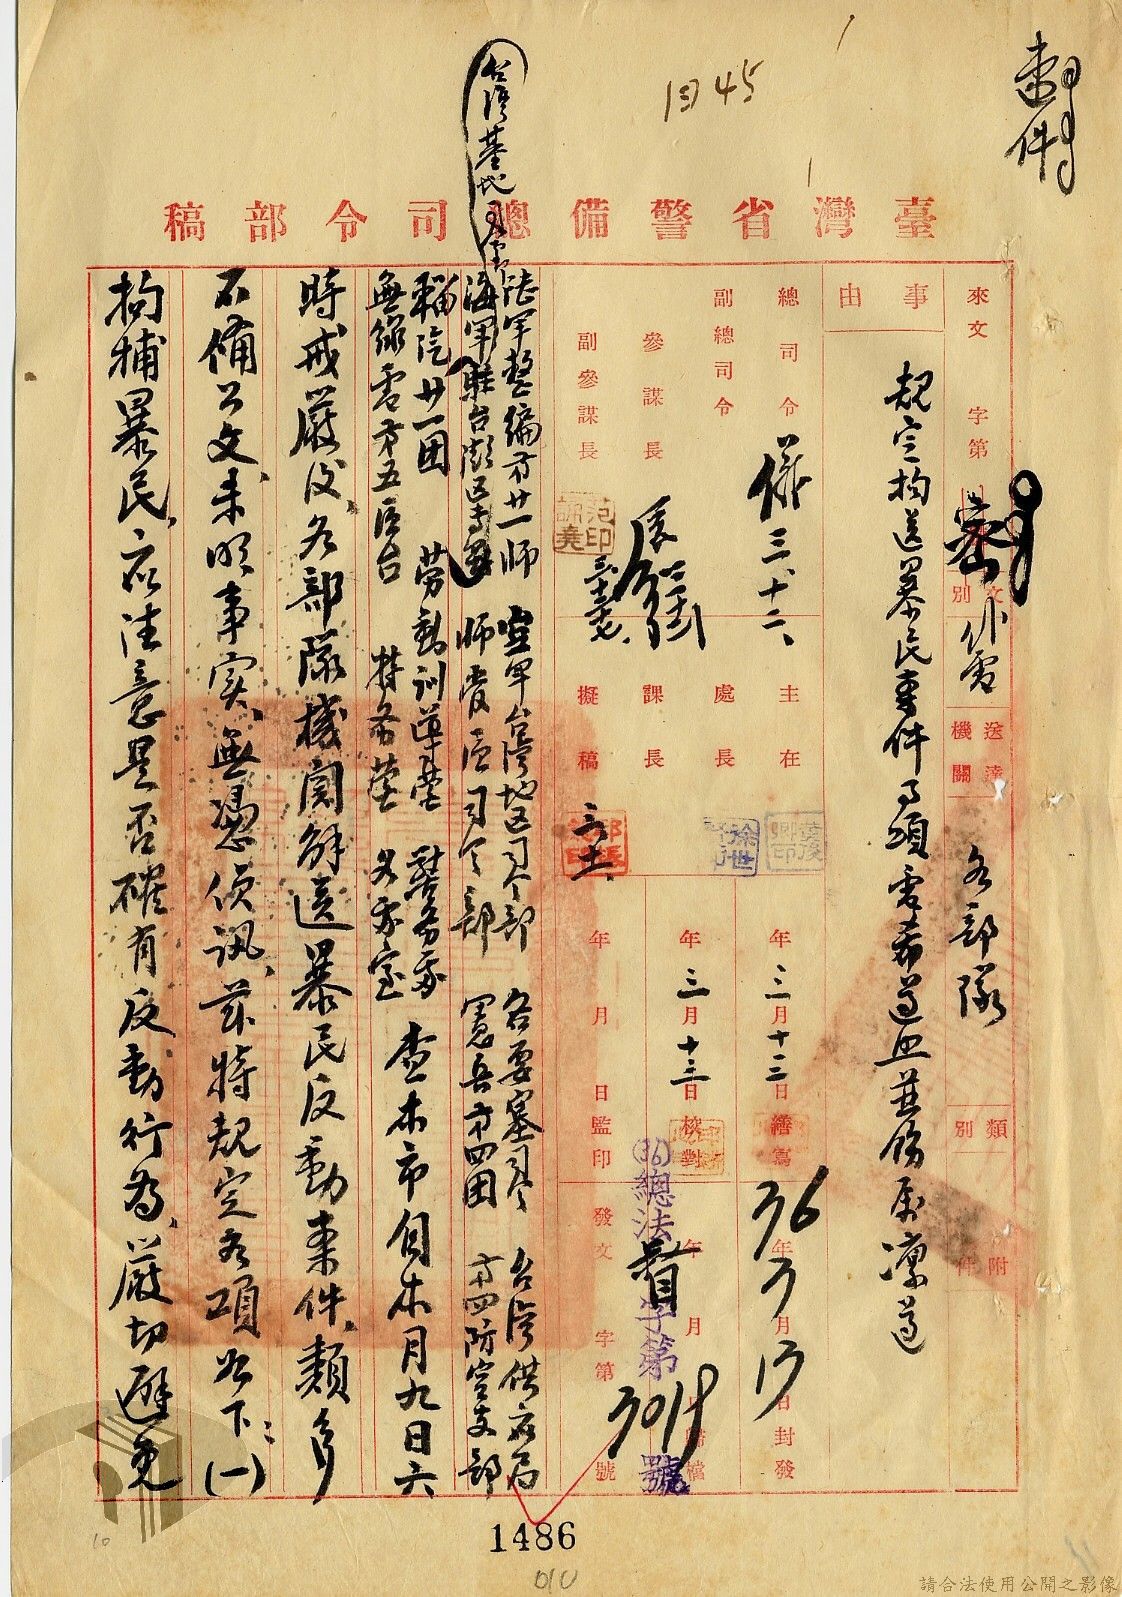 臺灣省警備總司令部稿
來文 字第
密
文別 代電
送達機關 各部隊
類別
附件
事由
規定拘送暴民案件事項電希遵照並飭屬凜遵
總司令 儀 三、十二、
副總司令
參謀長
副參謀長
主任
處長
課長
擬稿
三月十三日繕寫
年三月十三日校對
年月日監印
36年3月13日封發
年月日歸檔
發文字第號
(36)總法督字第3019號
台灣基地司令
陸軍整編第廿一師 空軍台灣地區司令部 各要塞司令 台灣供應局
海軍駐台澎區專員 師管區司令部 憲兵第四團 第四防空支部
輜汽廿一團 勞動訓導營 警務處
無線電第五區台 特務營 軍法室 查本市自本月九日六
時戒嚴後、各部隊機關解送暴民反動案件、類多
不備公文、未明事實、無憑偵訊、茲特規定各項如下：(一)
拘捕暴民、應注意是否確有反動行為、嚴切避免
1486
010
10
請合法使用公開之影像